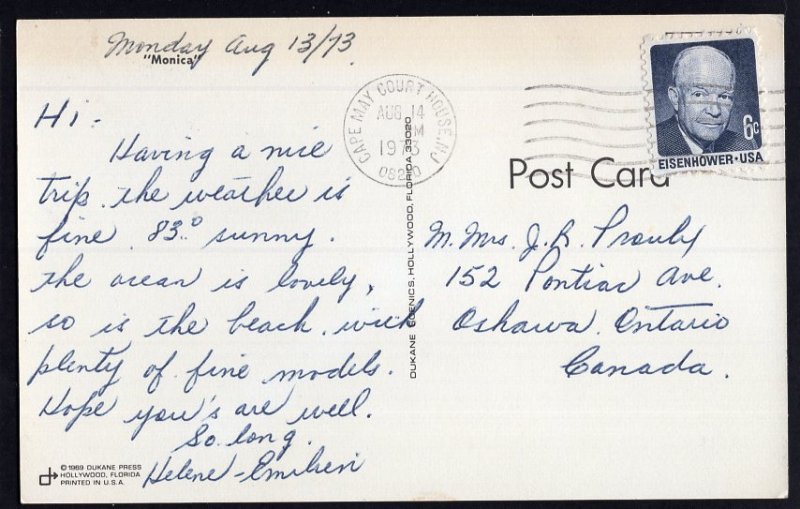 Monday Aug 13/73.
"Monica"
Hi -
Having a nice
trip. the weather is
fine. 83.° sunny.
the ocean is lovely,
so is the beach. with
plenty of fine models.
Hope you's are well.
So long.
Helene -
© 1969 DUKANE PRESS
HOLLYWOOD, FLORIDA
PRINTED IN U.S.A.
DUKANE SCENICS, HOLLYWOOD, FLORIDA 33020
CAPE MAY COURT HOUSE, NJ
AUG 14
1973
08210
6c
EISENHOWER·USA
Post Card
M. Mrs. J. R.
152 Pontiac Ave.
Oshawa. Ontario
Canada.